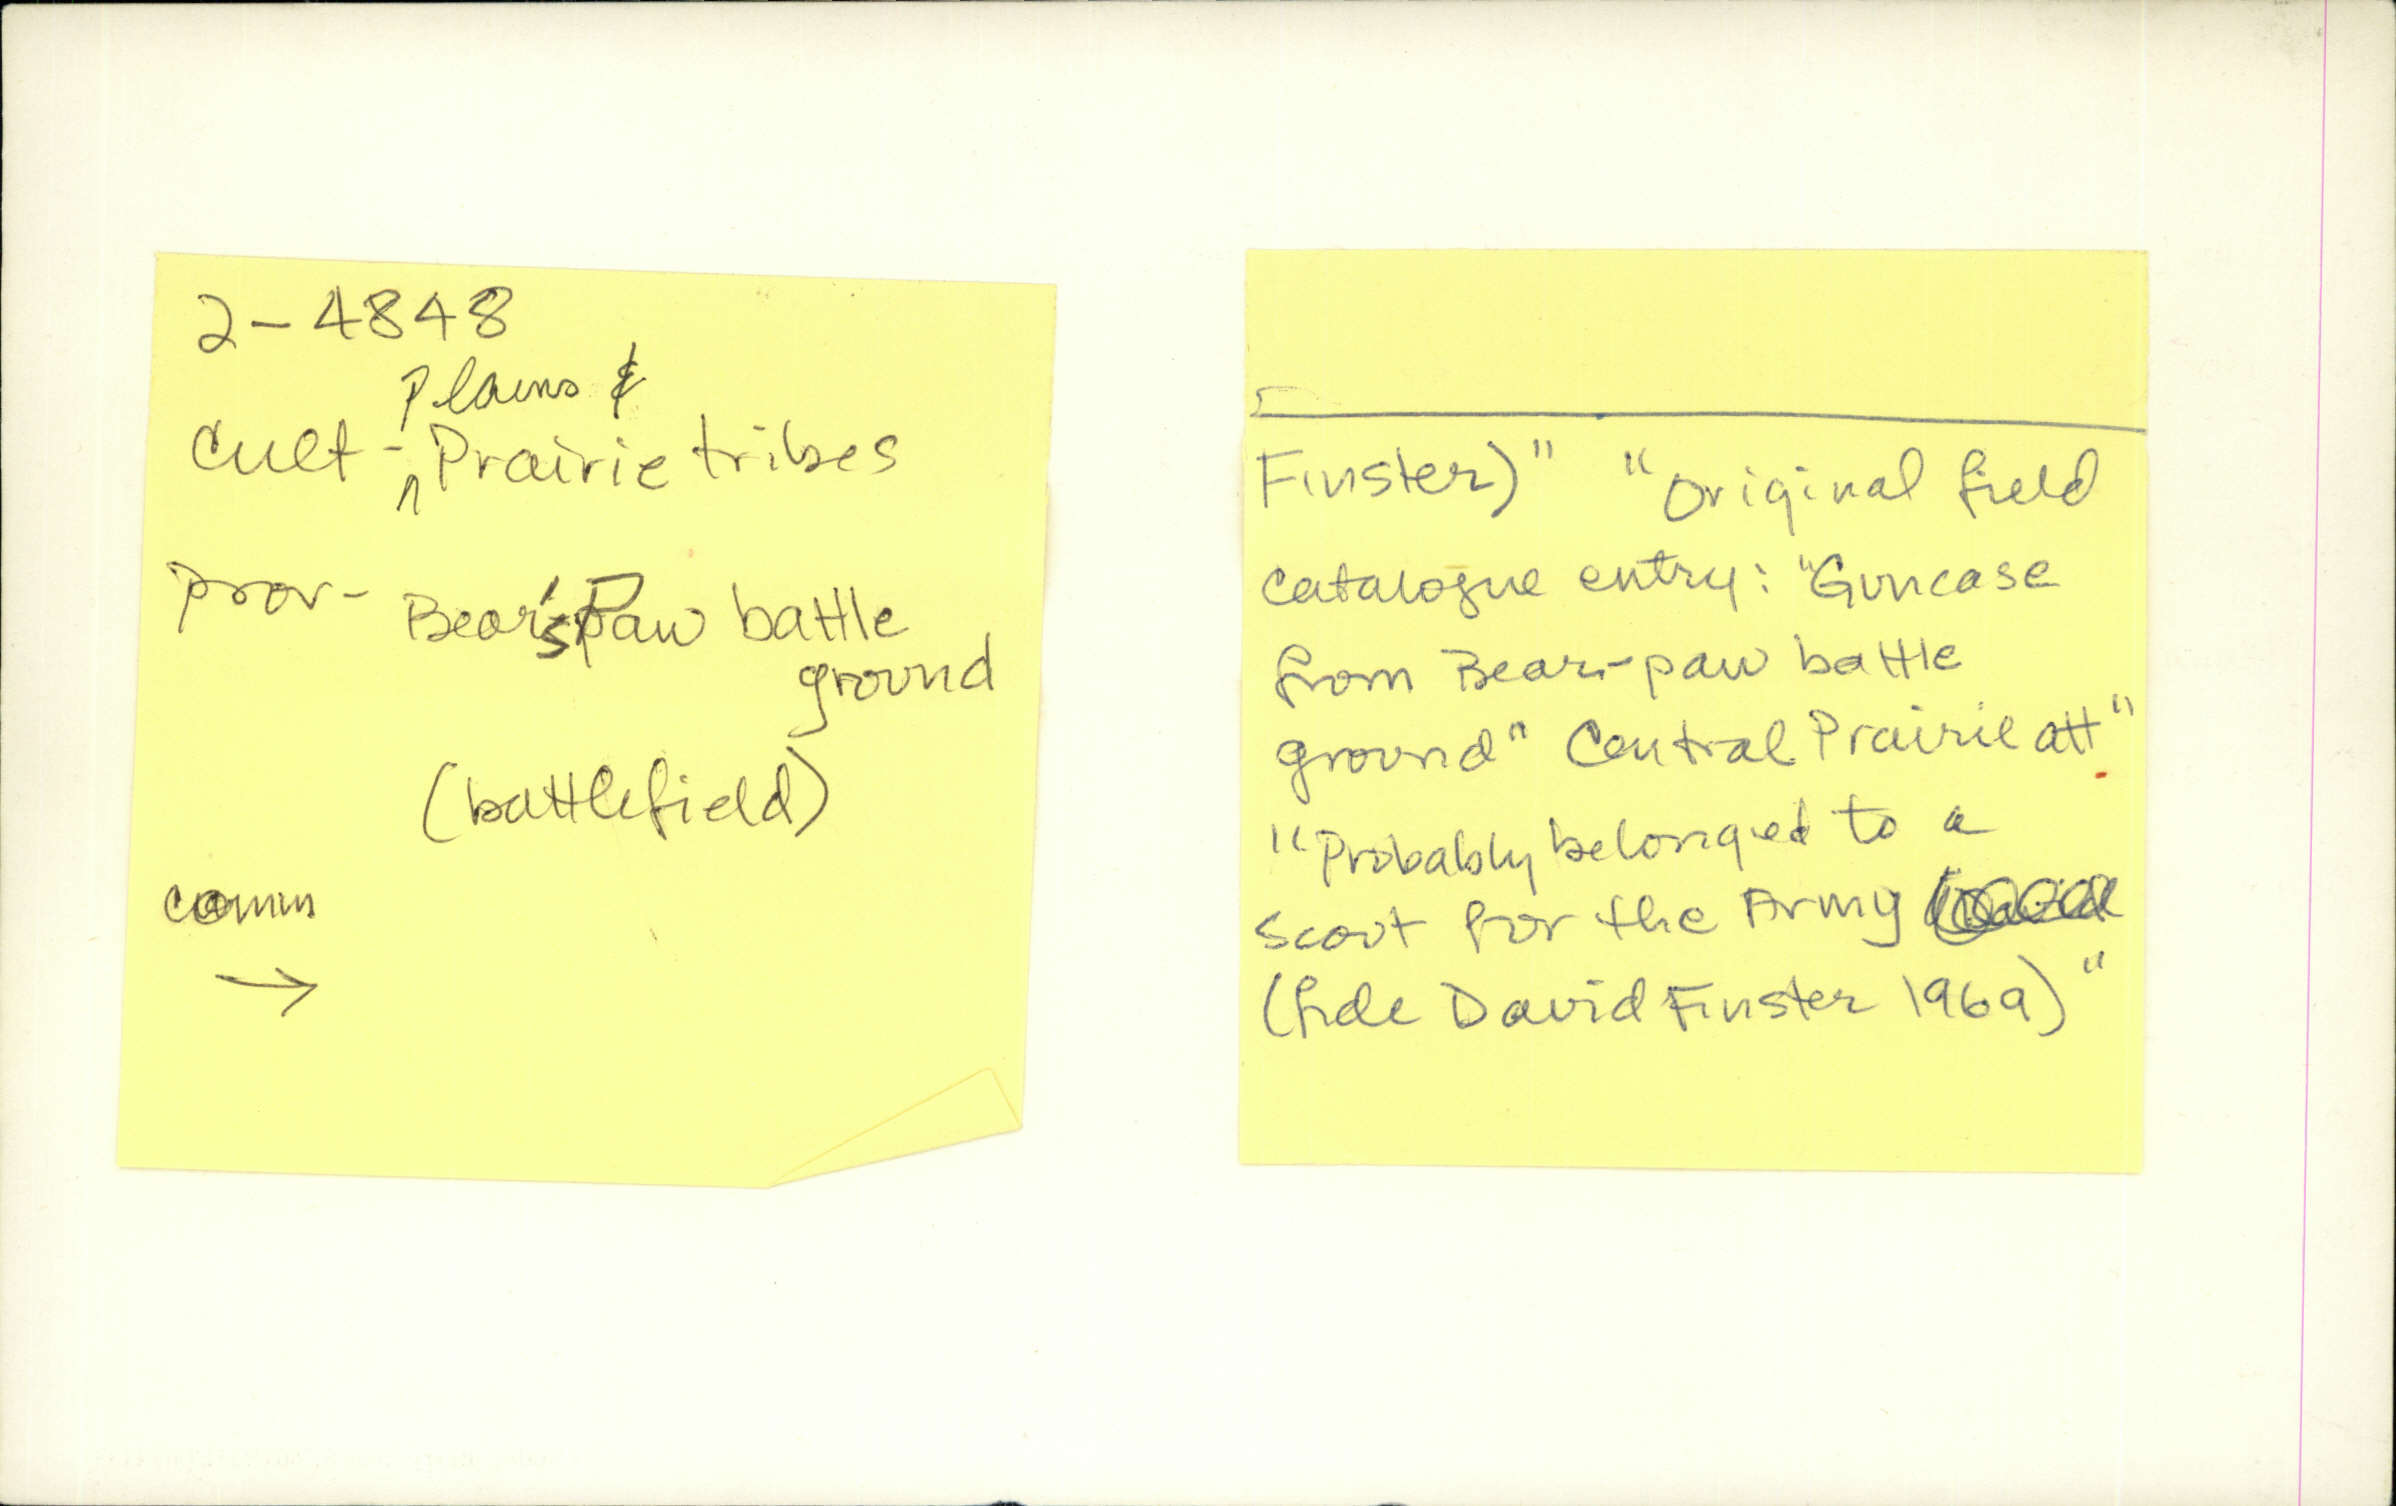 2-4848
Plains &
Cult - ^ Prairie tribes
prov- Bear's Paw battle
ground
(battlefield)
comm
→
Finster)" "Original field
catalogue entry: "Guncase
from Bear-paw battle
ground" Central Prairie att"
"Probably belonged to a
scout for the Army
(fide David Finster 1969)"